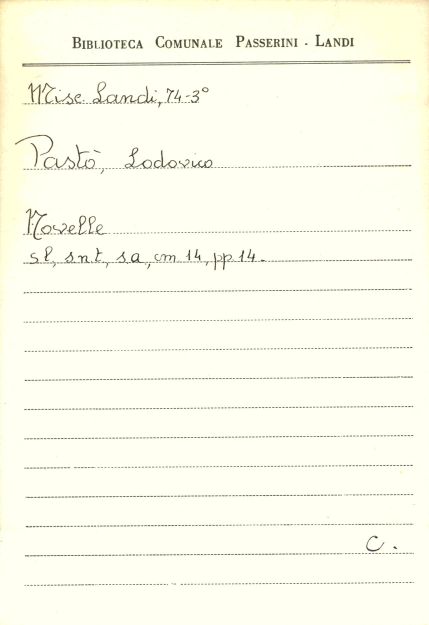 BIBLIOTECA COMUNALE PASSERINI - LANDI
Misc. Landi, 74-3°
Pastò, Lodovico
Novelle
s.l., s.n.t., s.a., cm. 14, pp. 14.
C.